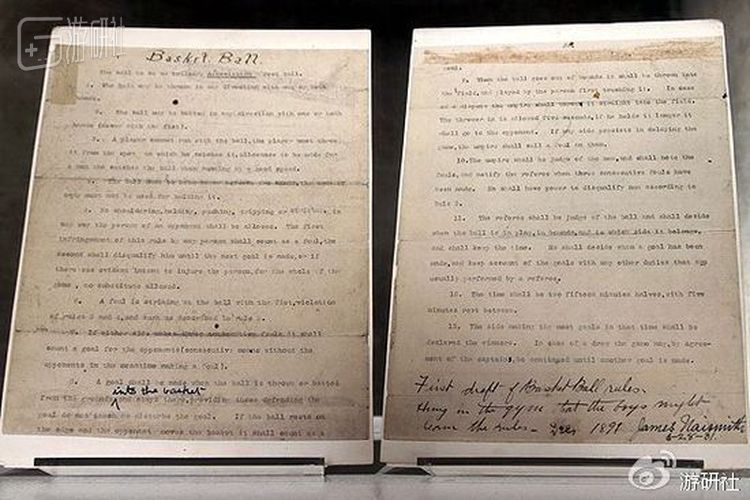 游研社
Basket Ball
The ball to be an ordinary Association foot ball.
1. The ball may be thrown in any direction with one or both
hands.
2. The ball may be batted in any direction with one or both
hands (never with the fist).
3. A player cannot run with the ball, the player must throw
it from the spot on which he catches it, allowance to be made for
a man who catches the ball when running at a good speed.
4. The ball must be held
must not be used for holding it.
5. No shouldering, holding, pushing, tripping or striking, in
any way the person of an opponent shall be allowed. The first
infringement of this rule by any person shall count as a foul, the
second shall disqualify him until the next goal is made, or if
there was evident intent to injure the person, for the whole of the
game, no substitute allowed.
6. A foul is striking at the ball with the fist, violation
of rules 3 and 4, and such as described in rule 5.
7. If either side makes three consecutive fouls it shall
count a goal for the opponents (consecutive means without the
opponents in the meantime making a foul).
8. A goal shall be made when the ball is thrown or batted
into the basket
from the grounds and stays there, providing those defending the
goal do not touch or disturb the goal. If the ball rests on
the edge and the opponent moves the basket it shall count as a
goal.
9. When the ball goes out of bounds it shall be thrown into
the field, and played by the person first touching it. In case
of a dispute the umpire shall throw it straight into the field.
The thrower in is allowed five seconds, if he holds it longer it
shall go to the opponent. If any side persists in delaying the
game, the umpire shall call a foul on them.
10. The umpire shall be judge of the men, and shall note the
fouls, and notify the referee when three consecutive fouls have
been made. He shall have power to disqualify men according to
Rule 5.
11. The referee shall be judge of the ball and shall decide
when the ball is in play, in bounds, and to which side it belongs,
and shall keep the time. He shall decide when a goal has been
made, and keep account of the goals with any other duties that are
usually performed by a referee.
12. The time shall be two fifteen minutes halves, with five
minutes rest between.
13. The side making the most goals in that time shall be
declared the winners. In case of a draw the game may, by agreement
of the captains, be continued until another goal is made.
First draft of Basket Ball rules.
Hung in the gym that the boys might
learn the rules - Dec. 1891 James Naismith
6-28-31.
游研社